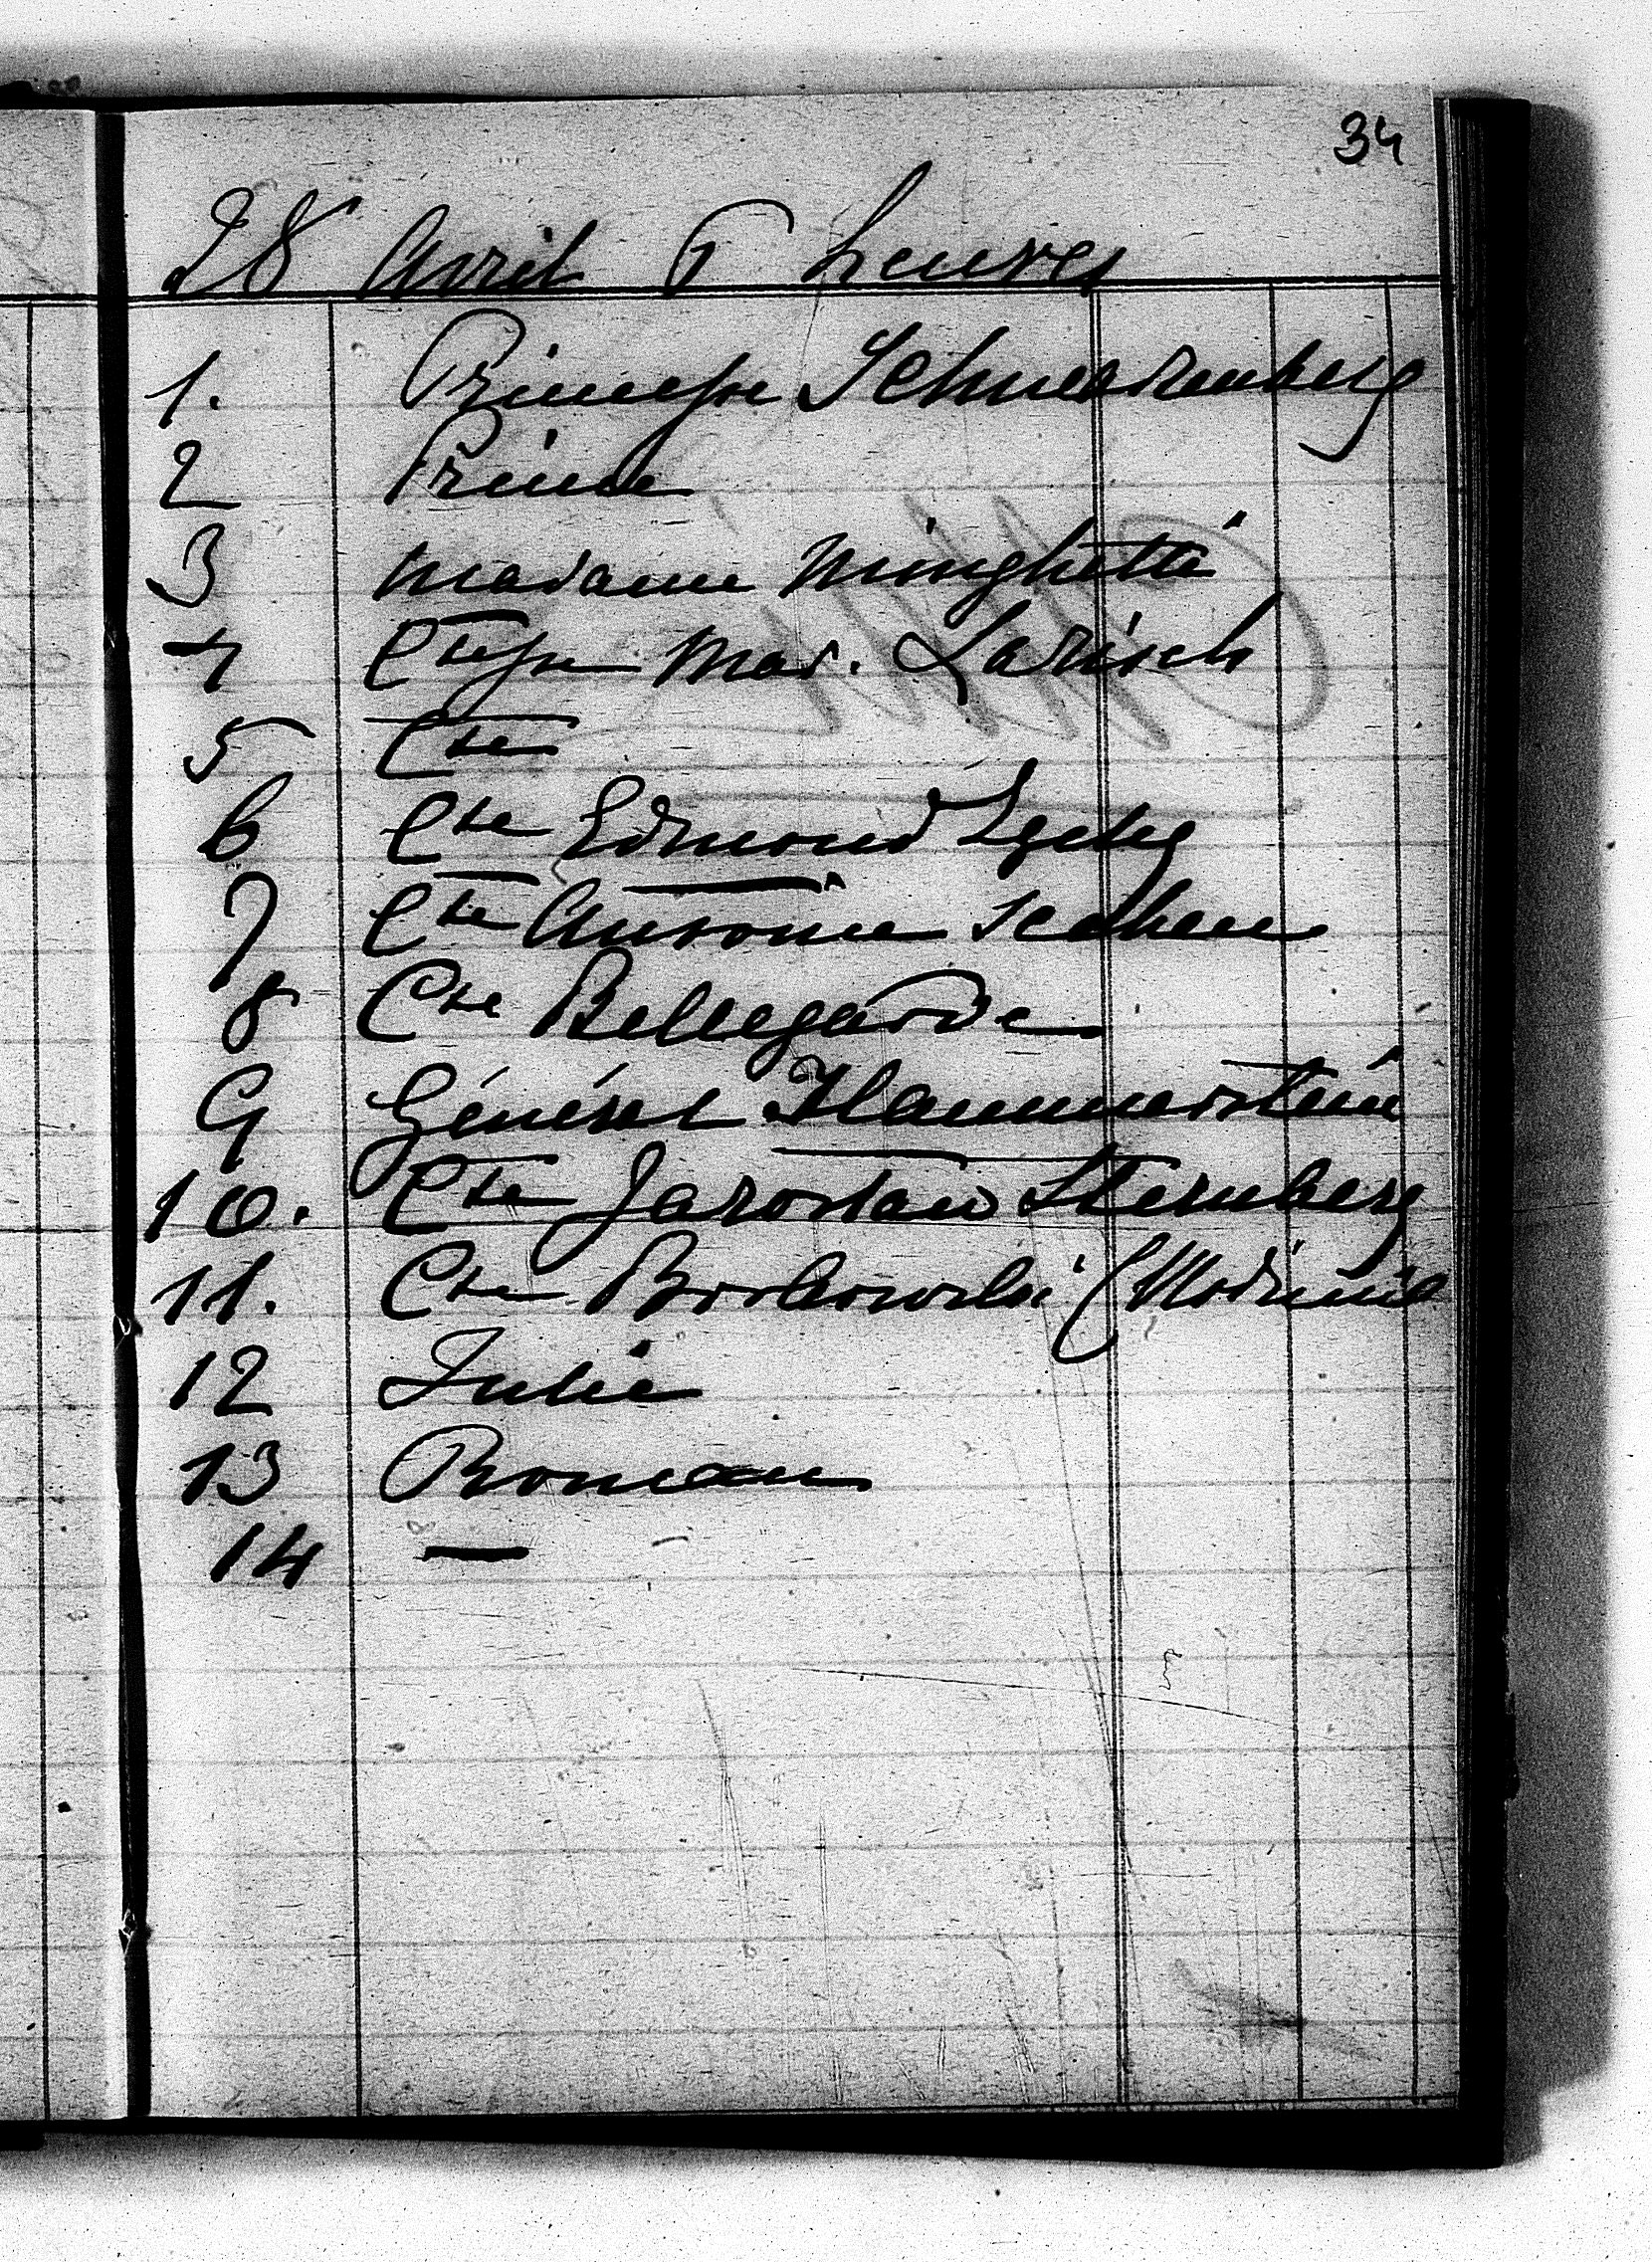 34
28 Avril 6 heures
1. Princesse Schwarzenberg
2 Prince
3 Madame Minghetti
4 Ctesse Mar. Larisch
5 Cte
6 Cte Edmond Zychy
7 Cte Antoine Sechen
8 Cte Bellegarde
9 Général Hammerstein
10. Cte Jaroslaw Sternberg
11. Cte Borkowski (Modimil
12 Julie
13 Roman
14 —